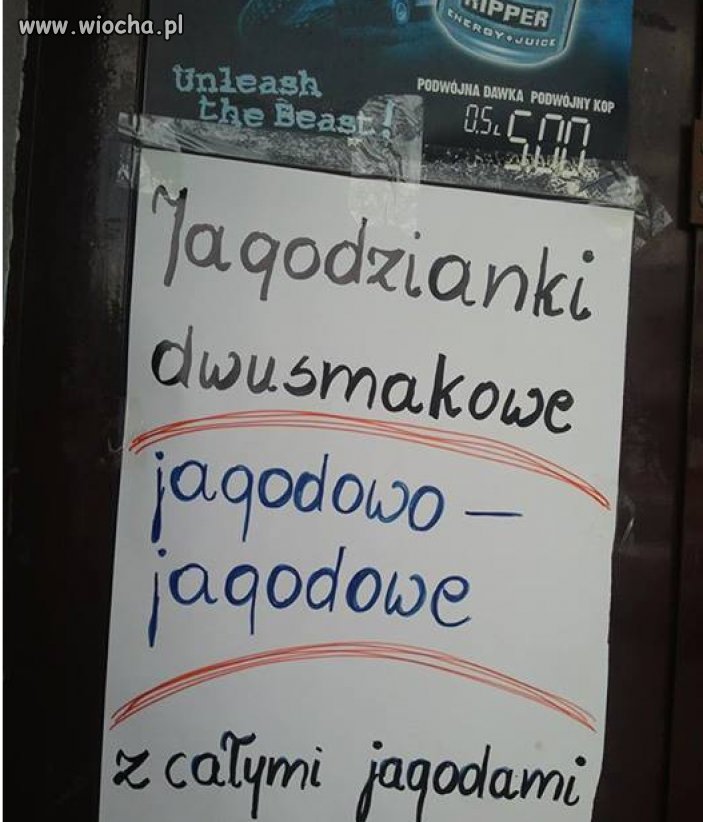 www.wiocha.pl
RIPPER
ENERGY JUICE
Unleash
the Beast!
PODWÓJNA DAWKA PODWÓJNY KOP
0,5L 5,00
Jagodzianki
dwusmakowe
jagodowo –
jagodowe
z całymi jagodami